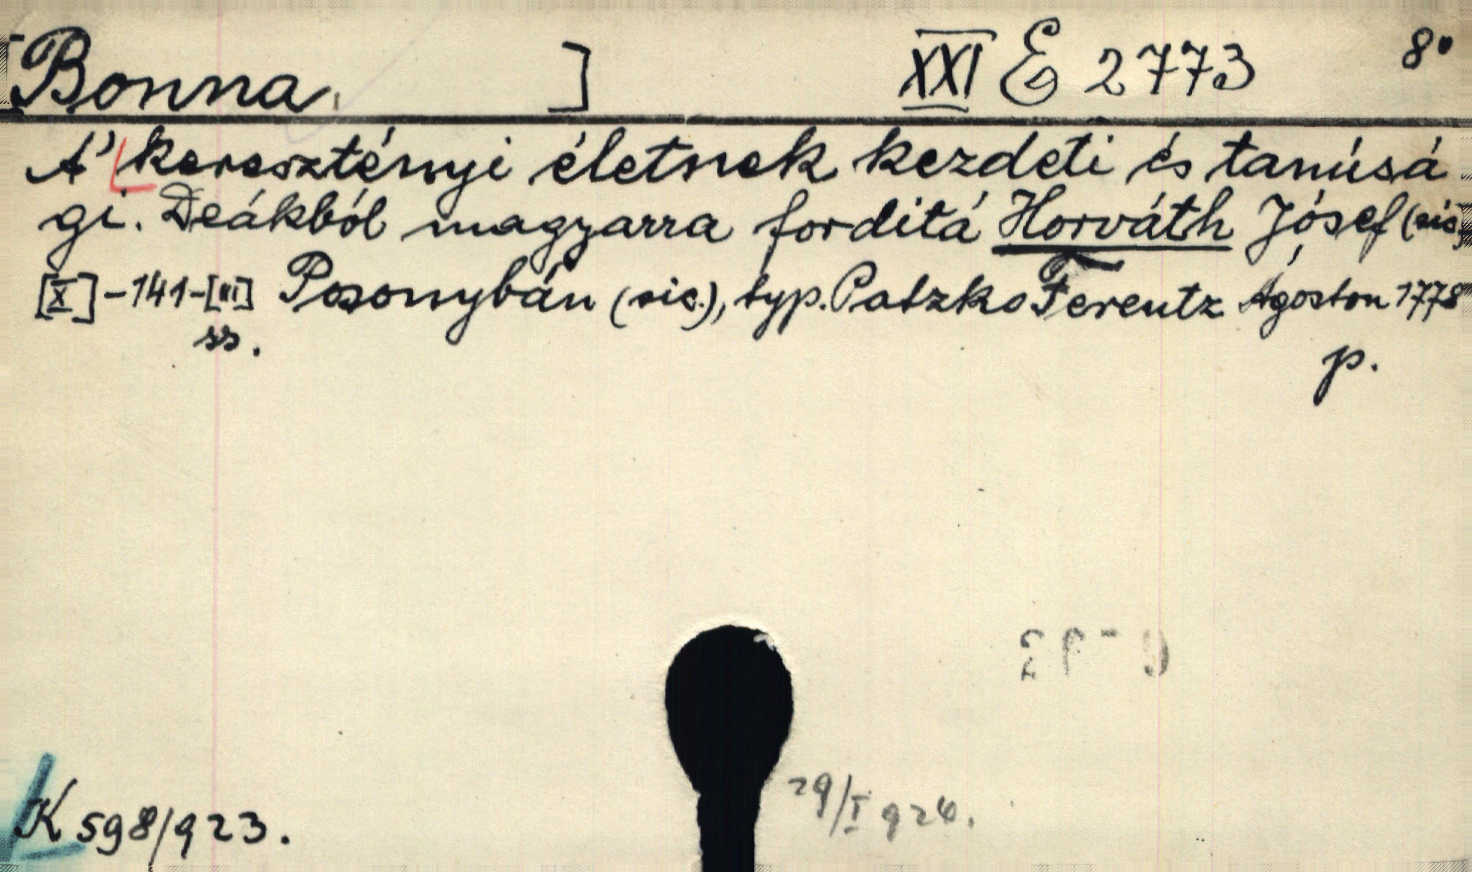 [Bonna. ] XXI E 2773 8°
A' keresztényi életnek kezdeti és tanúsá
gi. Deákból magyarra forditá Horváth Jósef (sic)
[X]-141-[III] Posonybán (sic.), typ. Patzko Ferentz Ágoston 1778
ss. p.
K 598/923.
29/I 924.